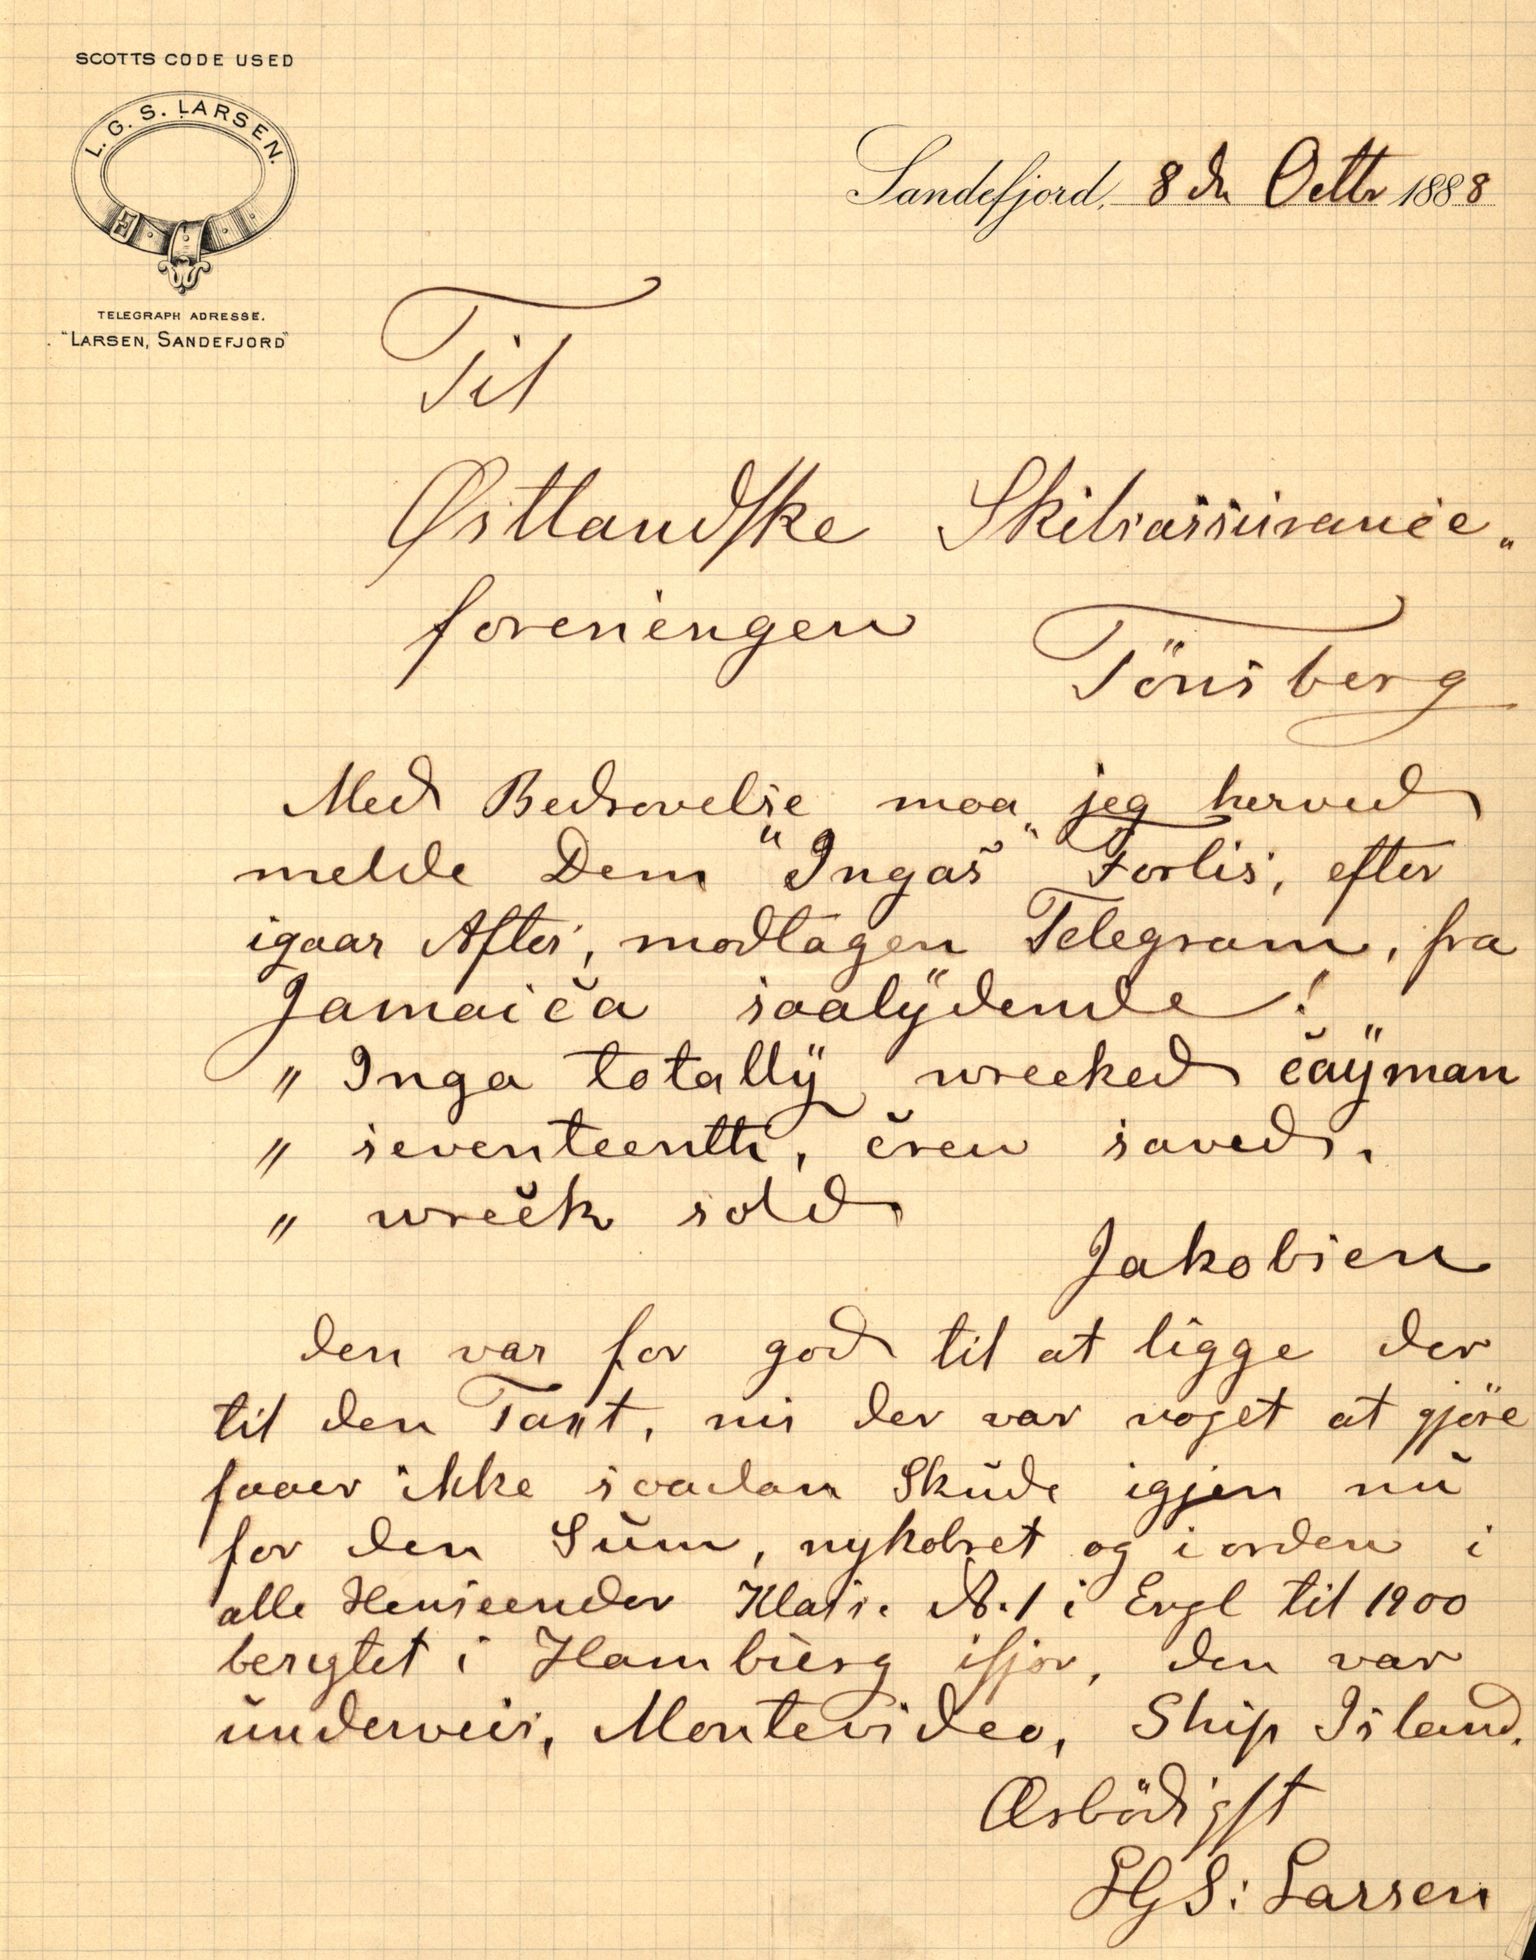 SCOTTS CODE USED
L. G. S. LARSEN.
TELEGRAPH ADRESSE.
"LARSEN, SANDEFJORD"
Sandefjord, 8 de Octbr 1888
Til
Østlandske Skibsassurance„
foreningen
Tönsberg
Med Bedrøvelse maa jeg herved
melde Dem "Ingas" Forlis, efter
igaar Aftes, modtagen Telegram, fra
Jamaica saalÿdende!
" Inga totallÿ wrecked caÿman
" seventeenth, crew saved.
" wreck sold
Jakobsen
den var for god til at ligge der
til den Taxt, nis der var noget at gjöre
faaer ikke saadan Skude igjen nu
for den Sum, nykobret og i orden i
alle Henseender Klass. A.1 i Engl til 1900
bergtet i Hamburg ifjor, den var
underveis, Montevideo, Ship Island.
Ærbödigst
LGS: Larsen